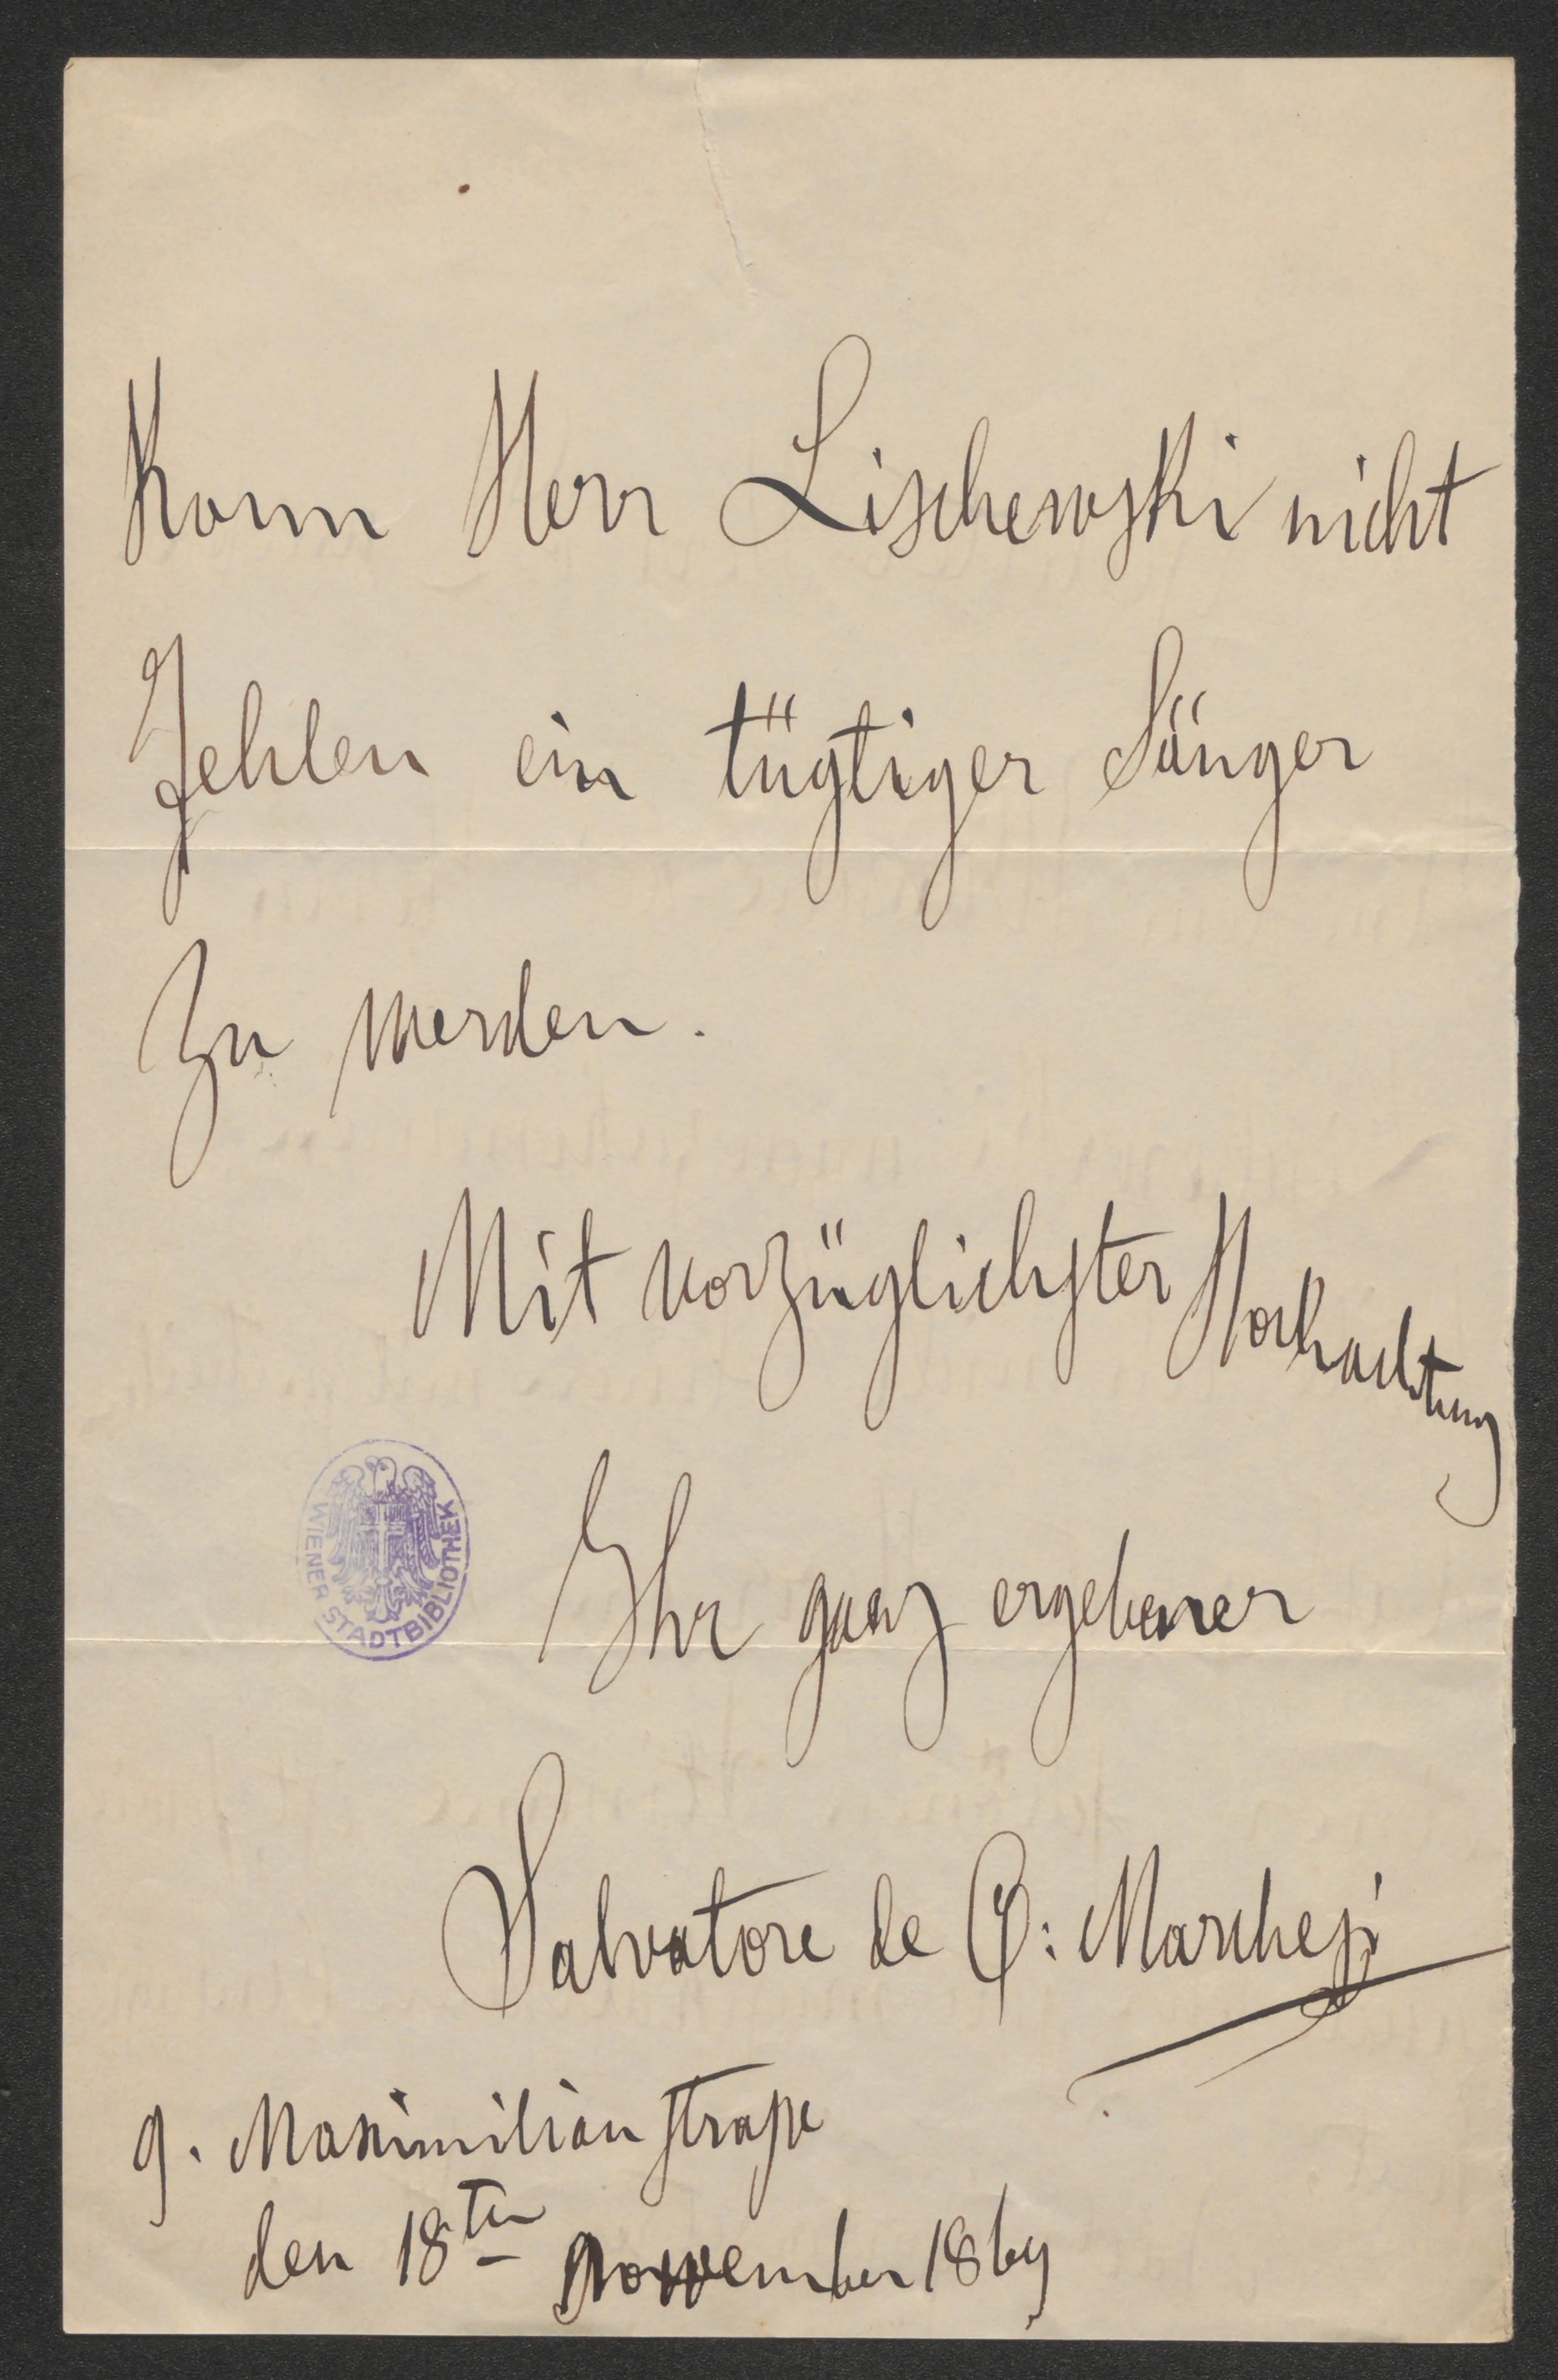 Kann Herr Lischewski nicht
fehlen ein tügtiger Sänger
zu werden.
Mit vorzüglichster Hochachtung
WIENER STADTBIBLIOTHEK
Ihr ganz ergebener
Salvatore de C: Marchesi
9. Maximilian strasse
den 18ten November 1869